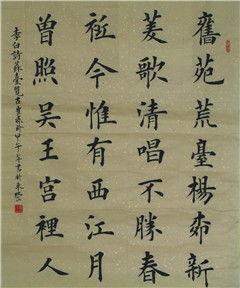 舊苑荒臺楊柳新
菱歌清唱不勝春
祗今惟有西江月
曾照吳王宮裡人
李白詩蘇臺覽古甲午年書於